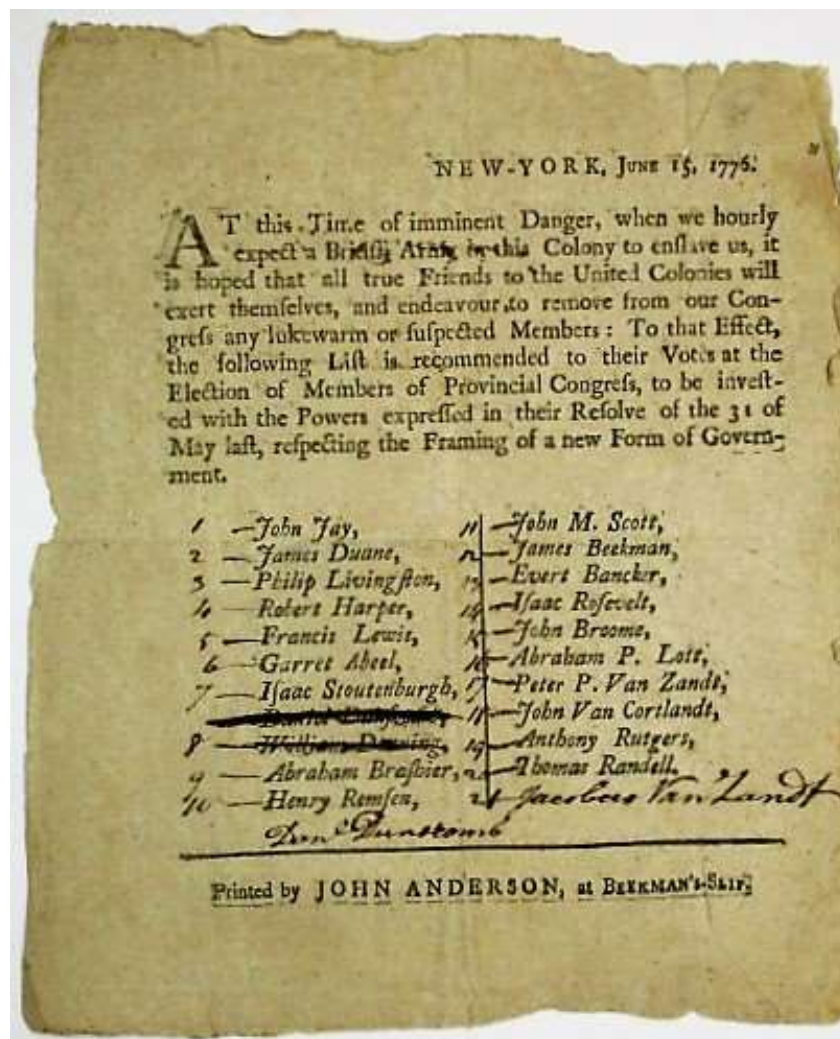 NEW-YORK, June 15, 1776.
AT this Time of imminent Danger, when we hourly
expect a British Army in this Colony to enſlave us, it
is hoped that all true Friends to the United Colonies will
exert themſelves, and endeavour to remove from our Con-
greſs any lukewarm or ſuſpected Members: To that Effect,
the following Liſt is recommended to their Votes at the
Election of Members of Provincial Congreſs, to be inveſt-
ed with the Powers expreſſed in their Reſolve of the 31 of
May laſt, reſpecting the Framing of a new Form of Govern-
ment.
1 —John Jay,
2 —James Duane,
3 —Philip Livingſton,
4 —Robert Harper,
5 —Francis Lewis,
6 —Garret Abeel,
7 —Iſaac Stoutenburgh,
Daniel
8 —William Denning,
9 —Abraham Braſhier,
10 —Henry Remſen,
Danl Dunscomb
11 —John M. Scott,
12 —James Beekman,
13 —Evert Bancker,
14 —Iſaac Roſevelt,
15 —John Broome,
16 —Abraham P. Lott,
17 —Peter P. Van Zandt,
18 —John Van Cortlandt,
19 —Anthony Rutgers,
20 —Thomas Randell.
21 Jacobus Van Zandt
Printed by JOHN ANDERSON, at Beekman's-Slip.